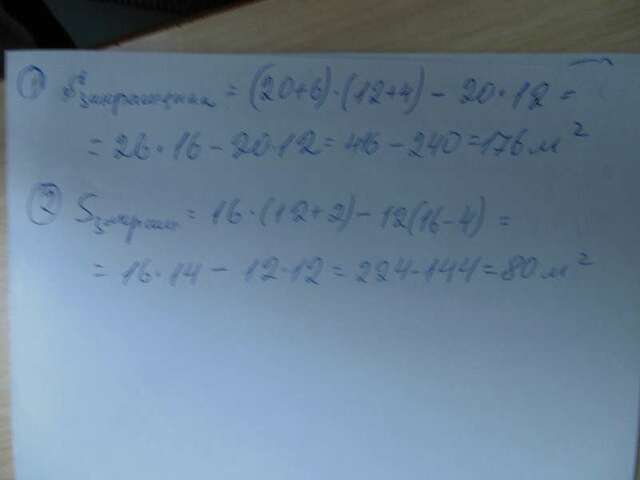 ① S закрашенная = (20+6)·(12+4) - 20·12 =
= 26·16 - 20·12 = 416 - 240 = 176 м²
② S закраш = 16·(12+2) - 12(16-4) =
= 16·14 - 12·12 = 224-144 = 80 м²